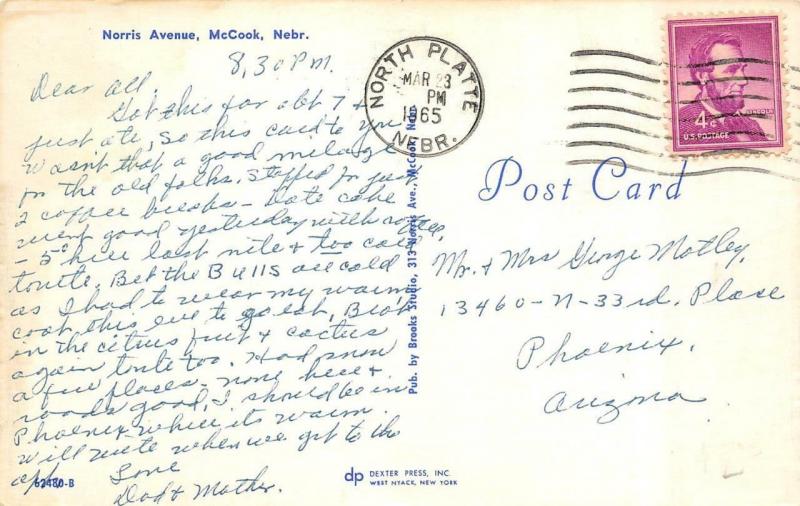 Norris Avenue, McCook, Nebr.
8,30 P.M.
Dear all,
Got this far abt 7 &
just ate, So this card to you
Wasn't that a good milage
for the old folks. Stopped for just
2 coffee breaks - Date cake
went good yesterday with coffee,
- 5° here last nite & too cold
tonite. Bet the Bulls are cold
as I had to wear my warm
coat this eve to go eat,
in the citrus fruit & cactus
again tonite too. Had snow
a few places - none here &
roads good, I should be in
Phoenix where its warm.
will write when we get to the
apt.
Love
Dad & Mother.
62480-B
Pub. by Brooks Studio, 313 Norris Ave., McCook, Neb
NORTH PLATTE
MAR 23
PM
1965
NEBR.
4¢
LINCOLN
U.S. POSTAGE
Post Card
Mr. & Mrs George Motley,
13460 - N - 33rd. Place
Phoenix,
Arizona
dp DEXTER PRESS, INC.
WEST NYACK, NEW YORK